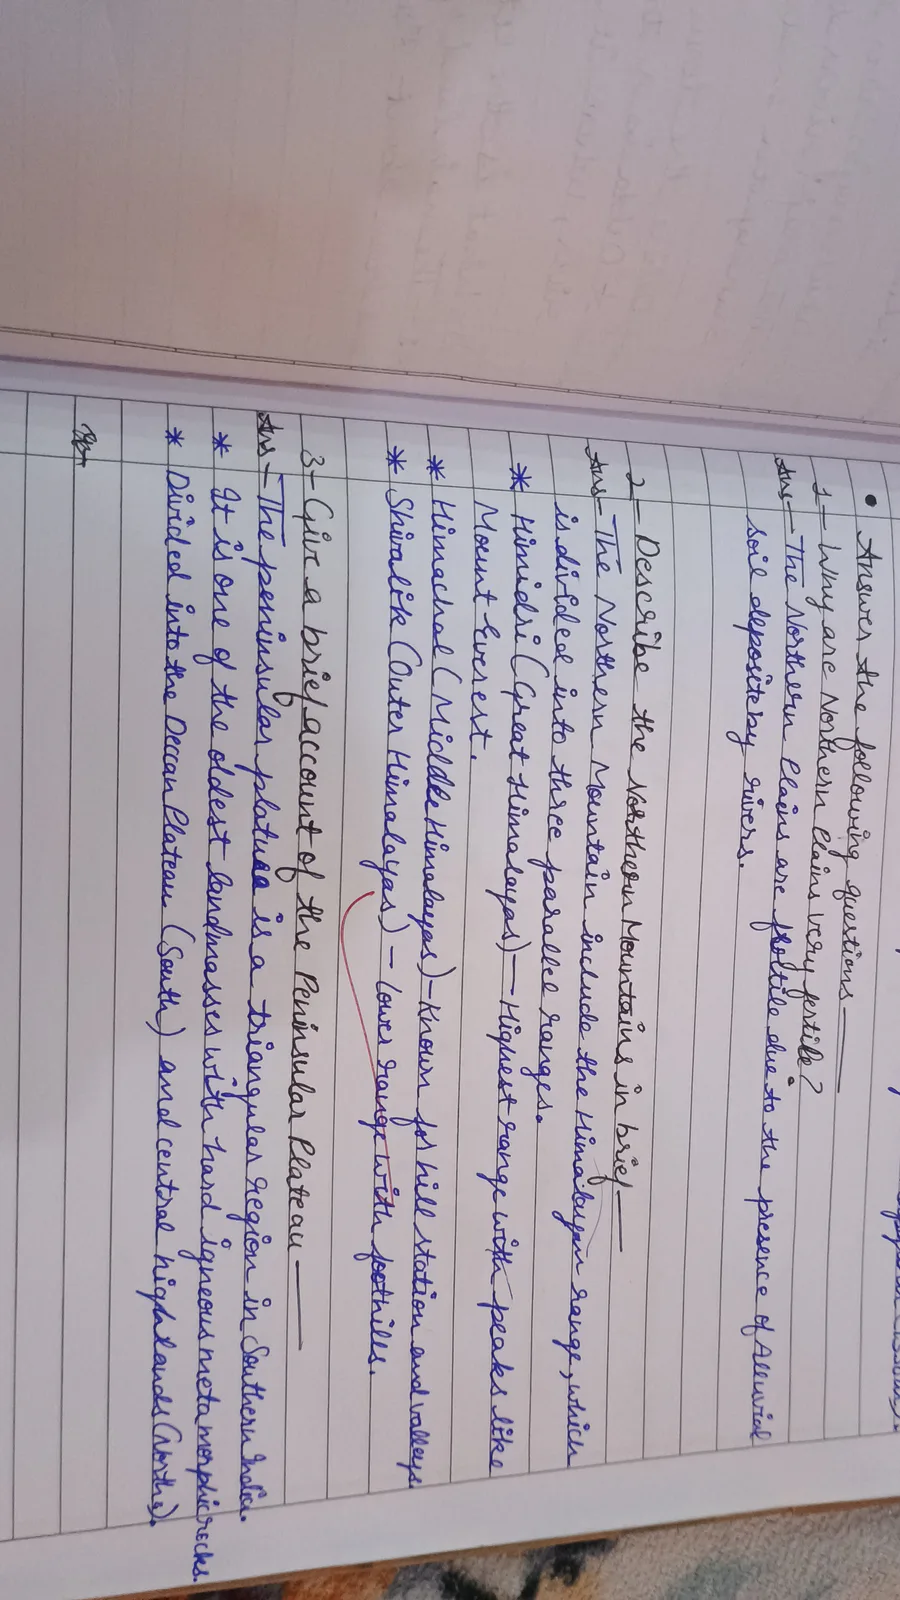 • Answer the following questions —
1 - Why are Northern Plains very fertile?
Ans - The Northern Plains are fertile due to the presence of Alluvial
soil deposite by rivers.
2 - Describe the Northern Mountains in brief —
Ans - The Northern Mountain include the Himalayan range, which
is divided into three parallel ranges.
* Himidri (Great Himalayas) - Highest range with peaks like
Mount Everest.
* Himachal (Middle Himalayas) - Known for hill station and valleys.
* Shivalik (Outer Himalayas) - lower range with foothills.
3 - Give a brief account of the Peninsular Plateau —
Ans - The peninsular plateau is a triangular region in Southern India.
* It is one of the oldest landmasses with hard igneous metamorphic rocks.
* Divided into the Deccan Plateau (South) and central highlands (North).